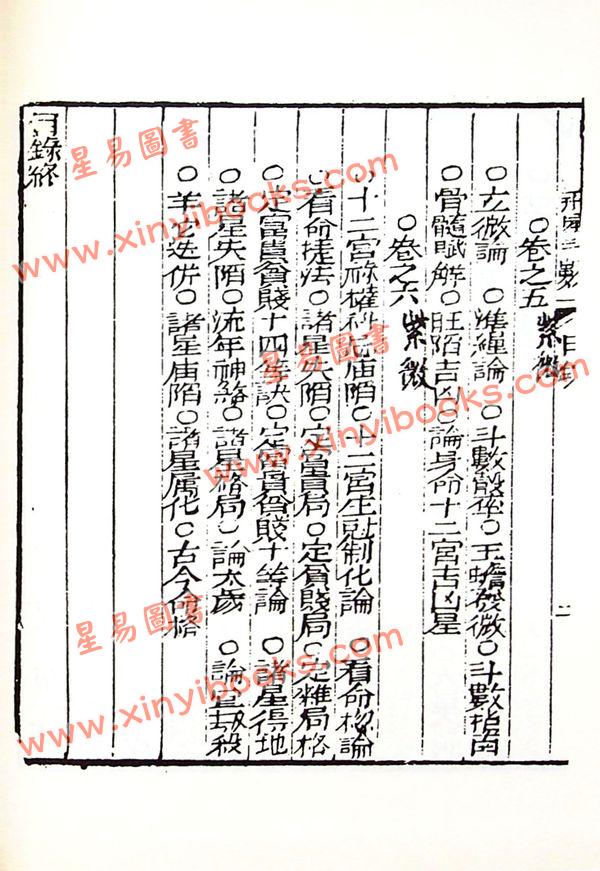 ○卷之五 紫微
○立微論 ○準繩論 ○斗數骰〇 ○玉蟾發微 ○斗數指南
○骨髓賦解 ○旺陷吉凶 ○論身命十二宮吉凶星
○卷之六 紫微
○十二宮祿權科忌庙陷 ○十二宮生尅制化論 ○看命總論
○看命捷法 ○諸星失陷 ○定富貴局 ○定貧賤局 ○定雜局格
○定富貴貧賤十四等訣 ○定富貴貧賤十等論 ○諸星得地
○諸星失陷 ○流年神煞 ○諸星格局 ○論太歲 ○論
○羊它迭併 ○諸星庙陷 ○諸星屬化 ○古今命格
目錄終
星易圖書
www.xinyibooks.com
星易圖書
www.xinyibooks.com
星易圖書
www.xinyibooks.com